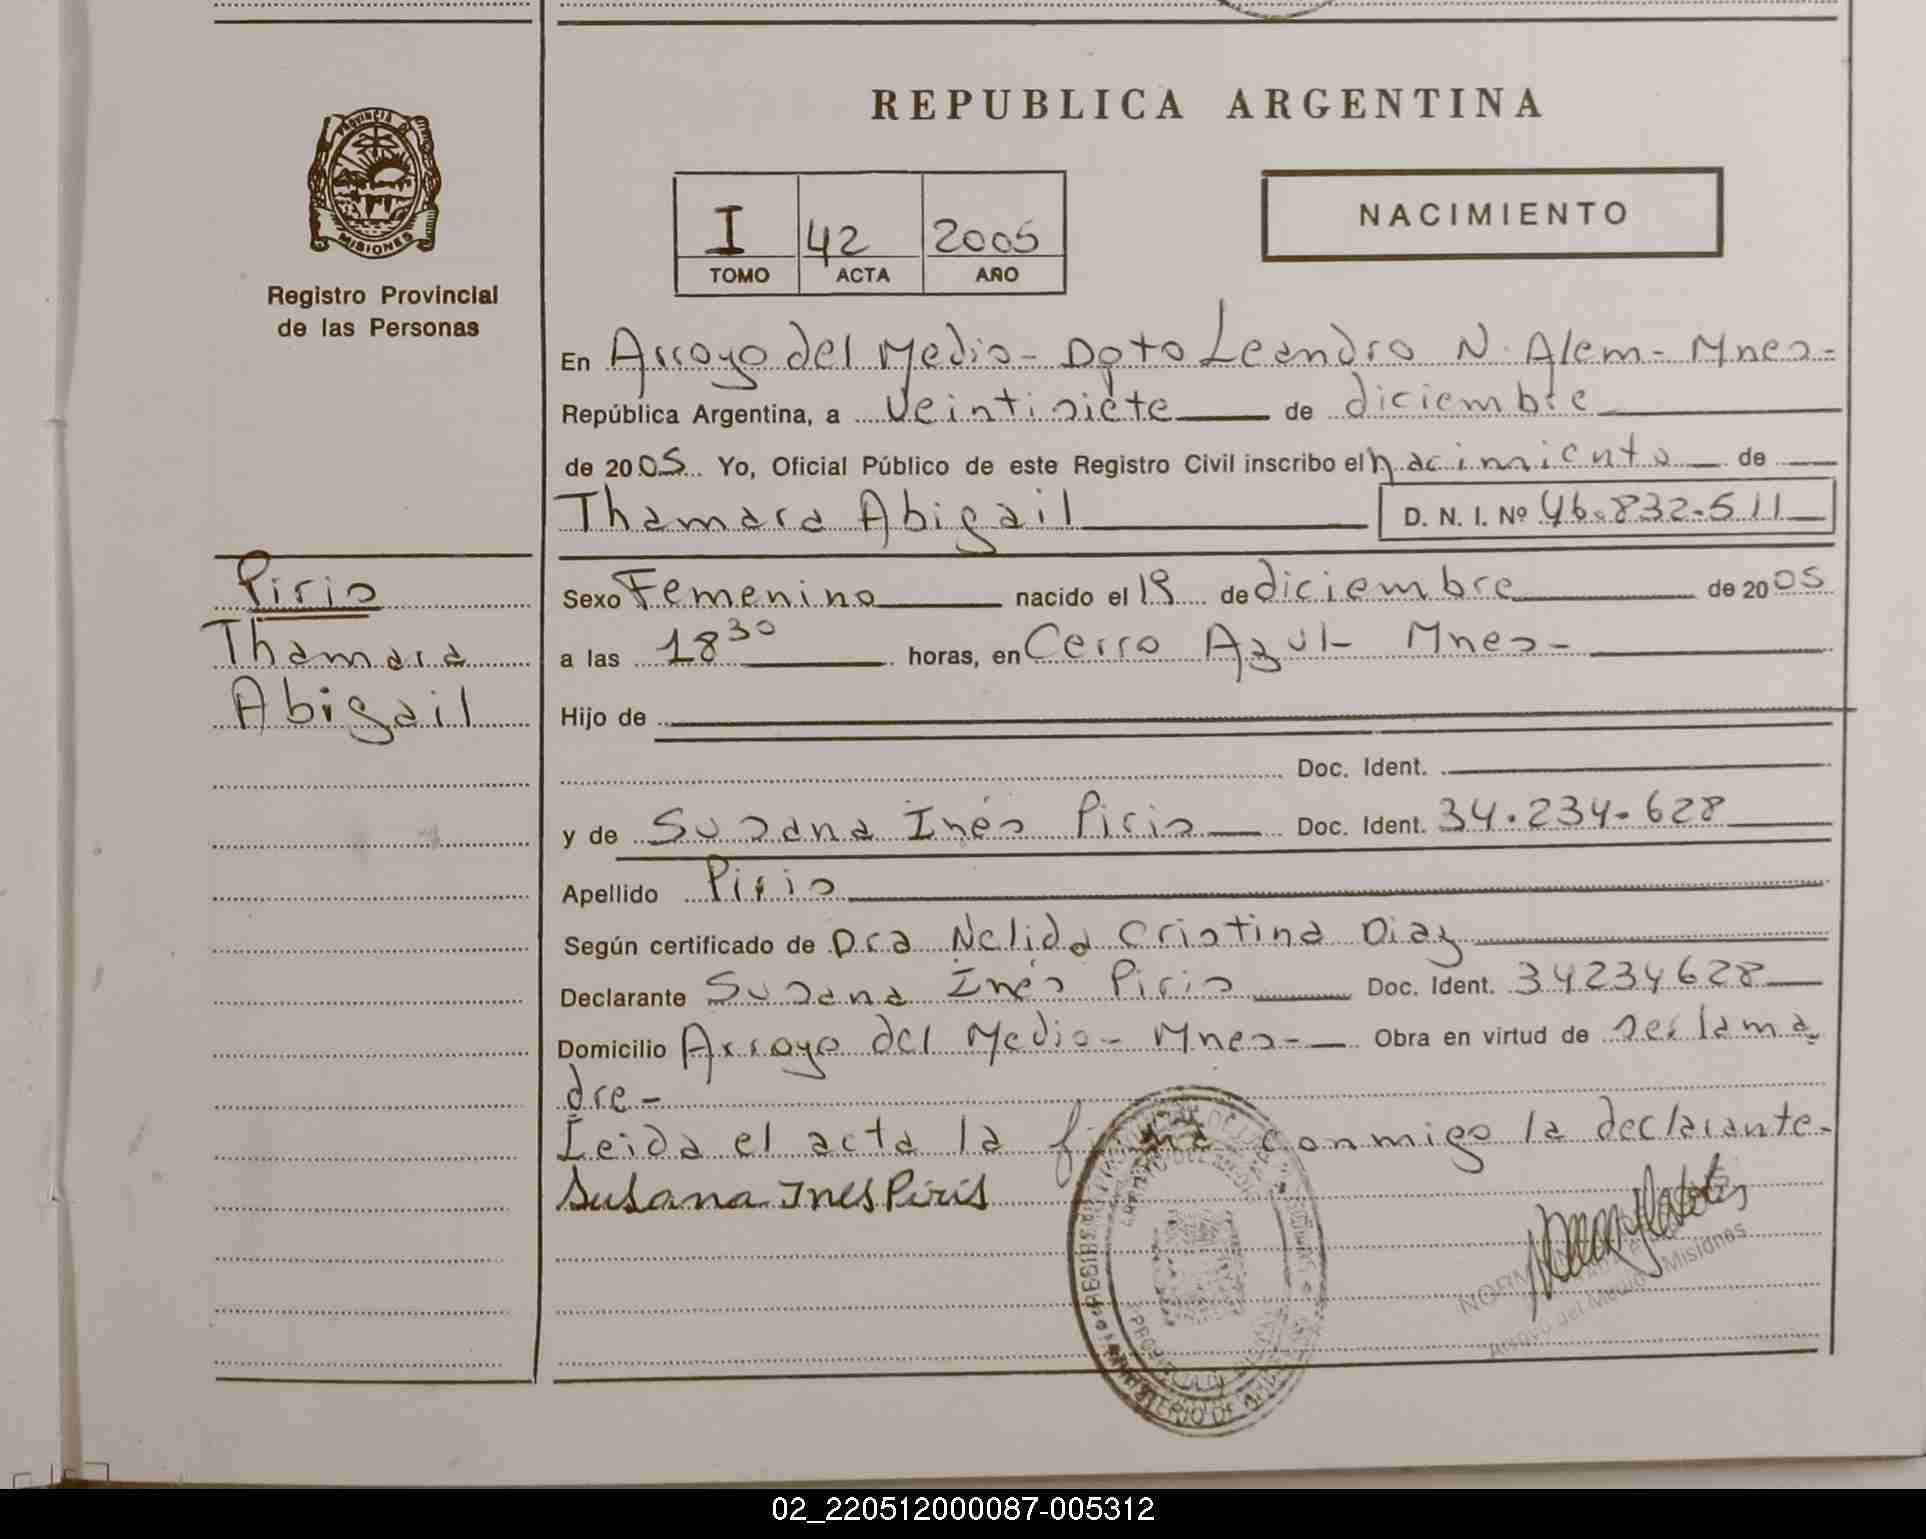 PROVINCIA DE
MISIONES
Registro Provincial
de las Personas
REPUBLICA ARGENTINA
NACIMIENTO
I 42 2005
TOMO ACTA AÑO
En Arroyo del Medio - Dpto Leandro N. Alem - Mnes -
República Argentina, a veintisiete de diciembre
de 2005 Yo, Oficial Público de este Registro Civil inscribo el nacimiento de
Thamara Abigail D. N. I. Nº 46.832.511
Piris
Thamara
Abigail
Sexo Femenino nacido el 19 de diciembre de 2005
a las 18 30 horas, en Cerro Azul - Mnes -
Hijo de
Doc. Ident.
y de Susana Inés Piris Doc. Ident. 34.234.628
Apellido Piris
Según certificado de Dra Nelida Cristina Diaz
Declarante Susana Inés Piris Doc. Ident. 34234628
Domicilio Arroyo del Medio - Mnes - Obra en virtud de ser la ma
dre -
Leida el acta la firma conmigo la declarante -
Susana Ines Piris
Arroyo del Medio Misiones
02_220512000087-005312